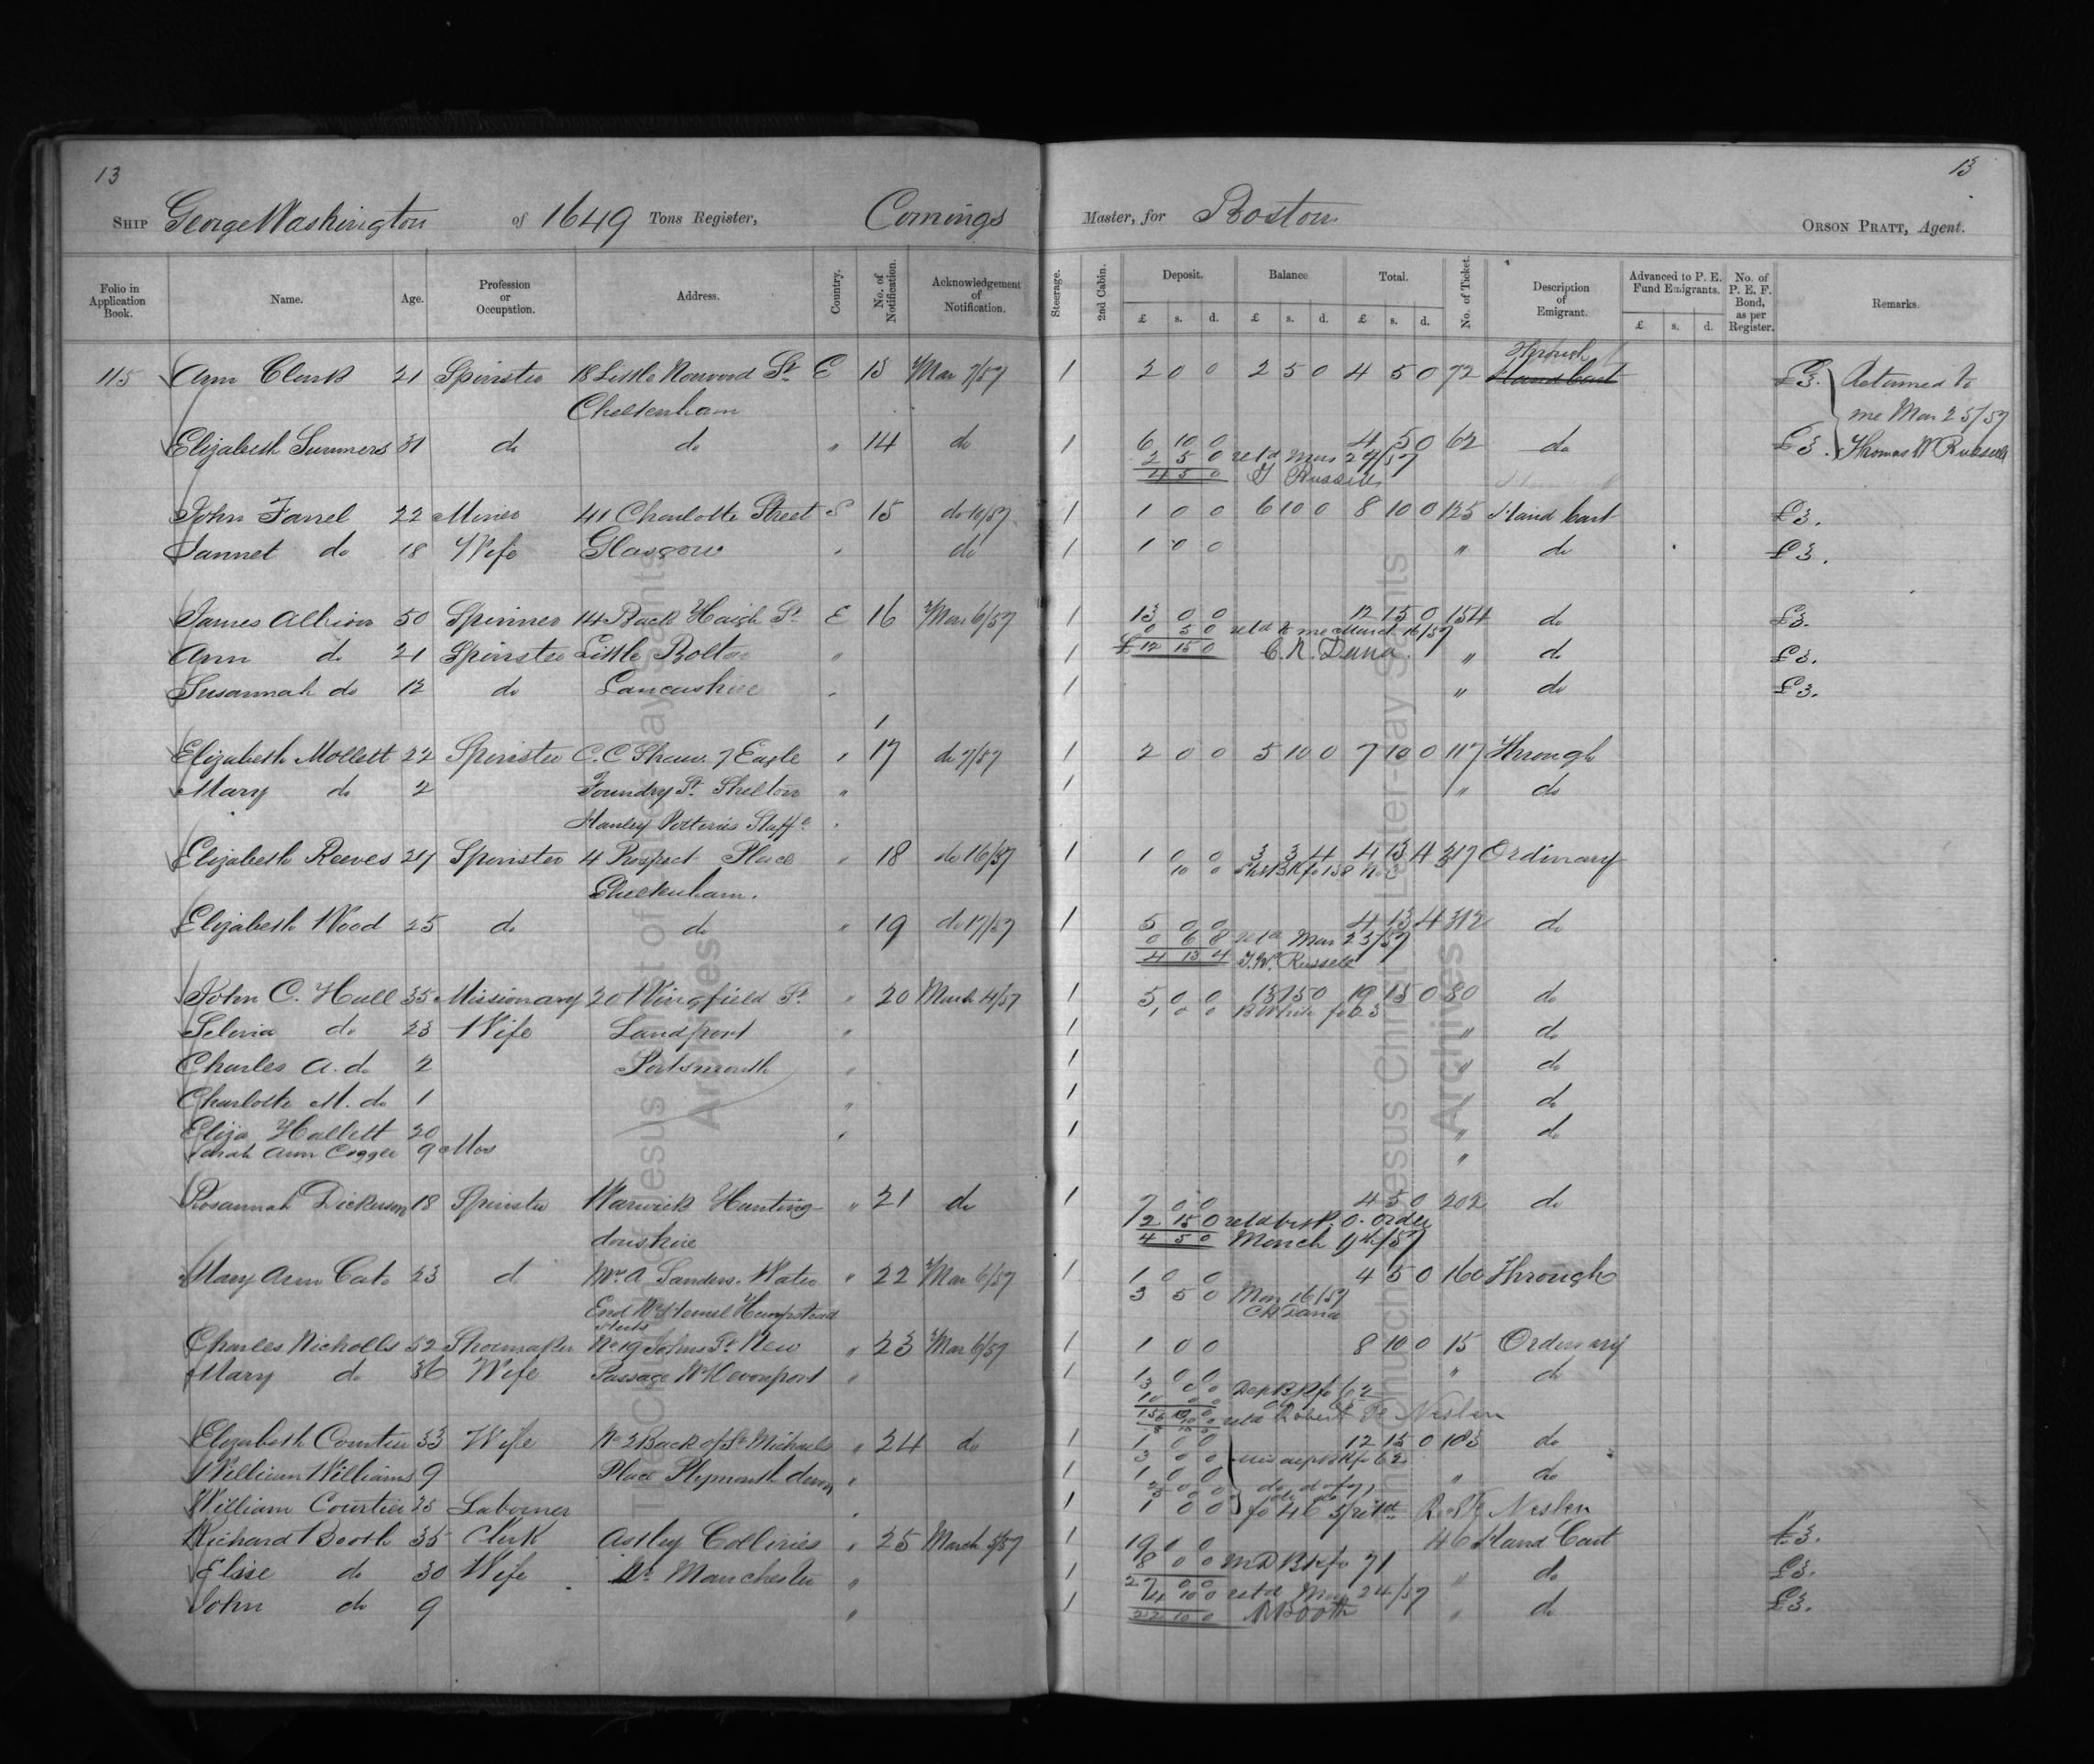 13
13
SHIP George Washington of 1649 Tons Register, Comings Master, for Boston ORSON PRATT, Agent.
Folio in Application Book. Name. Age. Profession or Occupation. Address. Country. No. of Notification. Acknowledgement of Notification. Steerage. 2nd Cabin. Deposit. Balance. Total. No. of Ticket. Description of Emigrant. Advanced to P. E. Fund Emigrants. No. of P. E. F. Bond, as per Register. Remarks.
£ s. d. £ s. d. £ s. d. £ s. d.
Through
115 Ann Clark 21 Spinster 18 Little Norwood St. E 13 Mar 7/57 1 2 0 0 2 5 0 4 5 0 72 Hand Cart £3. Returned to
Cheltenham me Mar 25/57
Elizabeth Summers 31 do do " 14 do 1 6 10 0 4 5 0 62 do £3. Thomas W Russell
2 5 0 retd Mar 24/57
4 5 0 T Russell
John Farrel 22 Miner 41 Charlotte Street S 15 do 10/57 1 1 0 0 6 10 0 8 10 0 125 Hand Cart £3.
Jannet do 18 Wife Glasgow " do 1 1 0 0 " do £3.
James Allison 50 Spinner 14 Back Haigh St. E 16 Mar 6/57 1 13 0 0 12 15 0 154 do £3.
0 5 0 retd to me March 16/57
Ann do 21 Spinster Little Bolton " 1 £12 15 0 C. R. Dana. " do £3.
Susannah do 12 do Lancashire " 1 " do £3.
Elizabeth Mollett 22 Spinster C. C Shaw. 7 Eagle " 17 do 7/57 1 2 0 0 5 10 0 7 10 0 117 Through
Mary do 2 Foundry St. Shelton " 1 " do
Hanley Potteries Staffe "
Elizabeth Reeves 24 Spinster 4 Prospect Place " 18 do 16/57 1 1 0 0 3 3 4 4 13 4 317 Ordinary
10 0
Cheltenham.
Elizabeth Wood 25 do do " 19 do 17/57 1 5 0 0 4 13 4 312 do
0 6 8 retd Mar 23/57
4 13 4 T. W. Russell
John C. Hall 35 Missionary 20 Wingfield St. " 20 March 4/57 1 5 0 0 13 15 0 19 15 0 80 do
1 0 0
Selina do 23 Wife Landport " 1 " do
Charles A. do 2 Portsmouth " 1 " do
Charlotte M. do 1 " 1 " do
Eliza Hallett 20 " 1 " do
Sarah Ann Cogger 9 Mos "
Rosannah Dickerson 18 Spinster Warwick Hunting- " 21 do 1 7 0 0 4 5 0 202 do
2 15 0 retd by P. O. Order
donshire 4 5 0 March 14/57
Mary Ann Cato 23 d Mr. A Sanders. Water " 22 Mar 6/57 1 1 0 0 4 5 0 160 Through
3 5 0 Mar 16/57
End Nr Hemel Hempstead C R Dana
Herts
Charles Nicholls 52 Shoemaker No 19 Johns St New " 23 Mar 6/57 1 1 0 0 8 10 0 15 Ordinary
Mary do 36 Wife Passage Nr Devonport " 1 1 0 0 " do
3 0 0
Elizabeth Courtier 33 Wife No 2 Back of St Michaels " 24 do 1 1 0 0 12 15 0 103 do
3 0 0
William Williams 9 Place Plymouth devon " 1 1 0 0 " do
William Courtier 25 Labourer " 1 1 0 0
Richard Booth 35 Clerk Astley Collieries " 25 March 5/57 1 19 0 0 46 Hand Cart £3.
8 0 0 M D Bk fo 71
Elsie do 30 Wife Nr Manchester " 1 27 0 0 " do £3.
4 10 0 retd Mar 24/57
John do 9 " 1 22 10 0 R Booth " do £3.
The Church of Jesus Christ of Latter-day Saints
Archives
The Church of Jesus Christ of Latter-day Saints
Archives